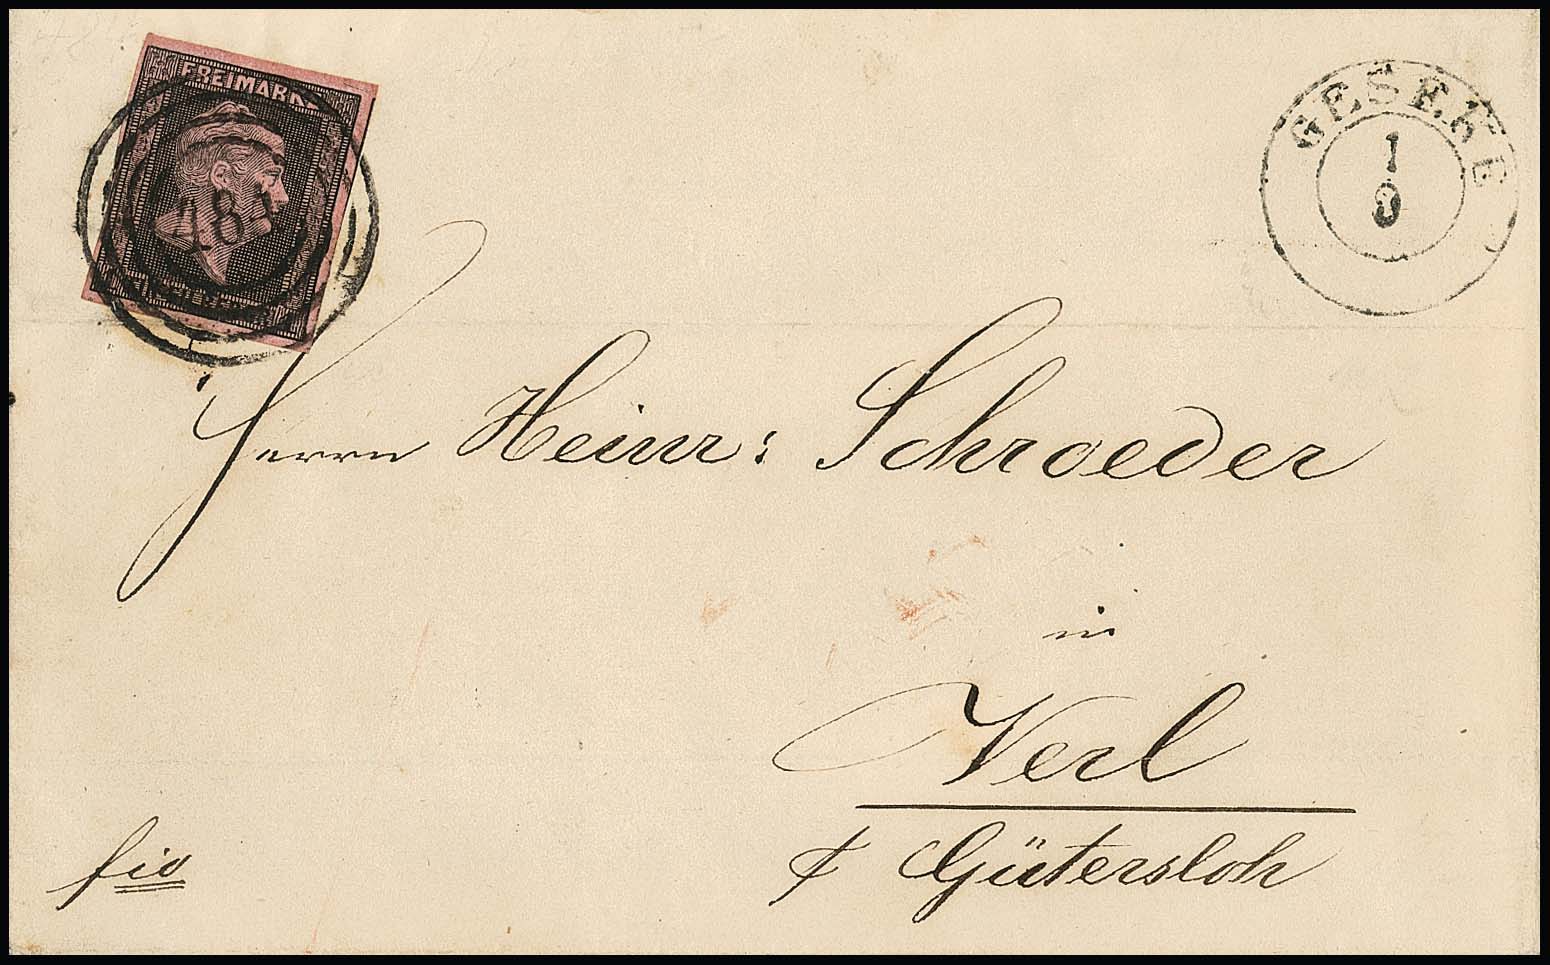 FREIMARK
GESEKE
1
9
Herrn Heinr: Schroeder
in
Verl
Gütersloh